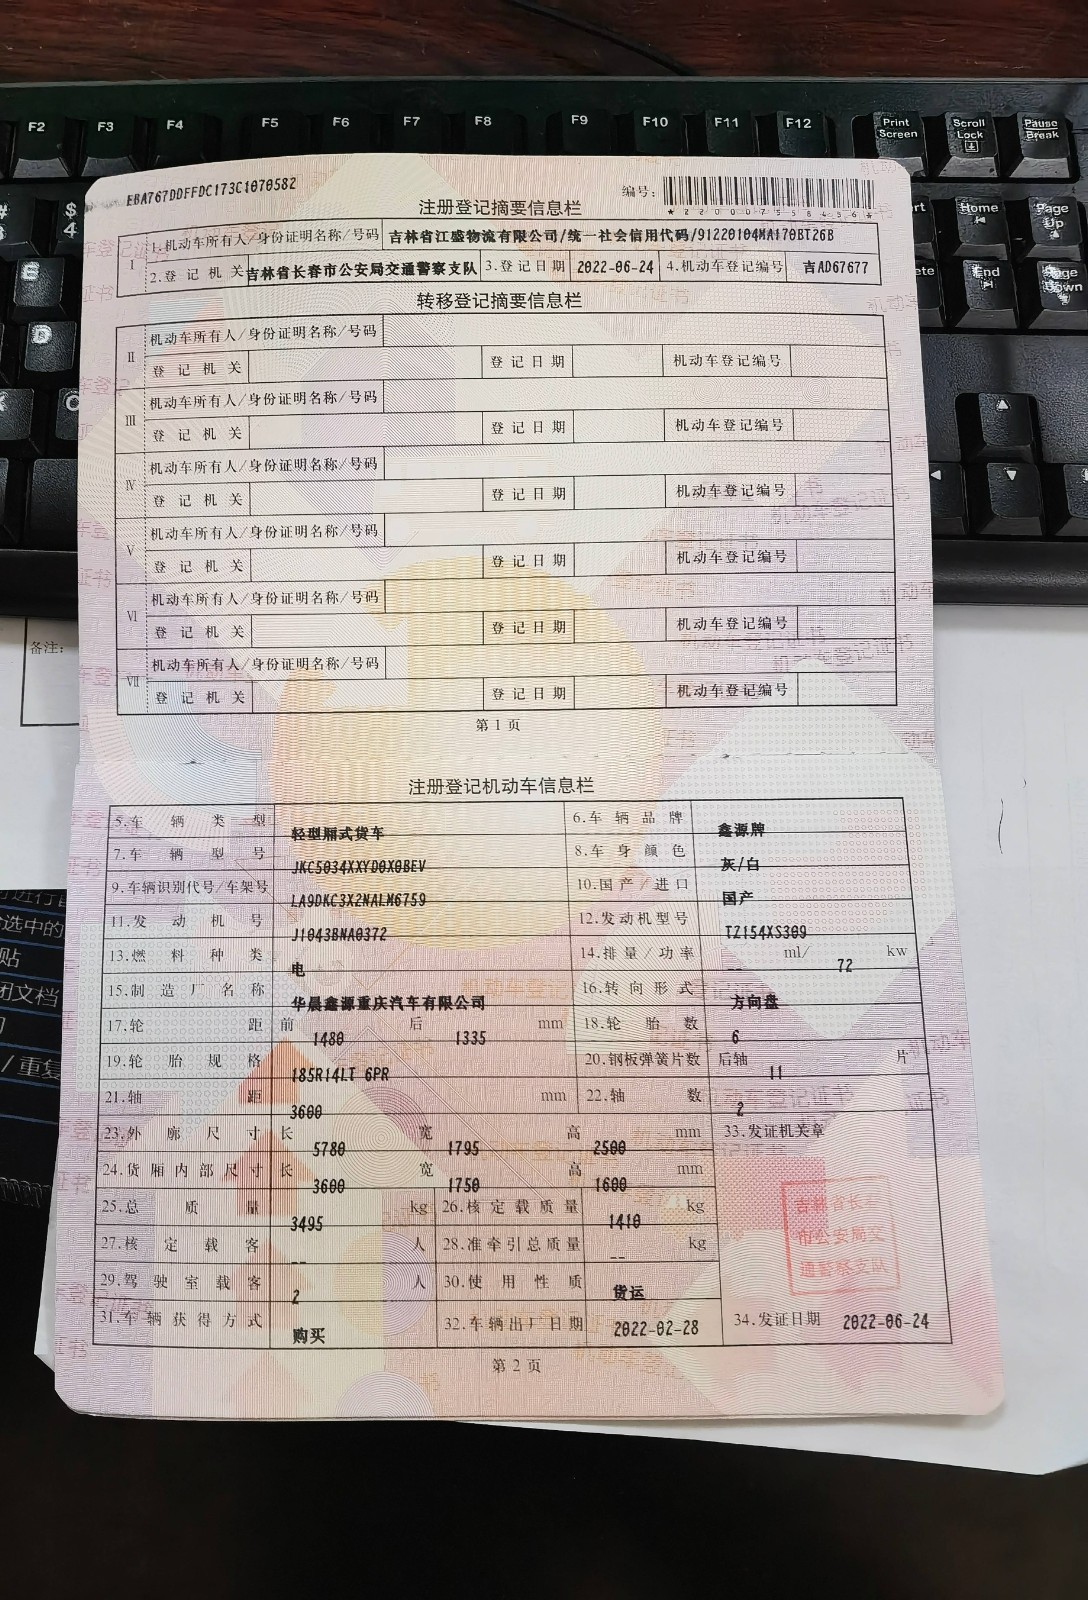 F2 F3 F4 F5 F6 F7 F8 F9 F10 F11 F12 Print Screen Scroll Lock Pause Break
$ 4 Home Page Up
End Page Down
EBA767DDFFDC173C1070582
编号:
*220007558456*
注册登记摘要信息栏
I 1.机动车所有人/身份证明名称/号码 吉林省江盛物流有限公司/统一社会信用代码/91220104MA170BT26B
2.登记机关 吉林省长春市公安局交通警察支队 3.登记日期 2022-06-24 4.机动车登记编号 吉AD67677
转移登记摘要信息栏
II 机动车所有人/身份证明名称/号码
登记机关 登记日期 机动车登记编号
III 机动车所有人/身份证明名称/号码
登记机关 登记日期 机动车登记编号
IV 机动车所有人/身份证明名称/号码
登记机关 登记日期 机动车登记编号
V 机动车所有人/身份证明名称/号码
登记机关 登记日期 机动车登记编号
VI 机动车所有人/身份证明名称/号码
登记机关 登记日期 机动车登记编号
VII 机动车所有人/身份证明名称/号码
登记机关 登记日期 机动车登记编号
第1页
备注:
注册登记机动车信息栏
5.车辆类型 轻型厢式货车 6.车辆品牌 鑫源牌
7.车辆型号 JKC5034XXYD0X0BEV 8.车身颜色 灰/白
9.车辆识别代号/车架号 LA9DKC3X2NALM6759 10.国产/进口 国产
11.发动机号 J1043BNA0372 12.发动机型号 TZ154XS309
13.燃料种类 电 14.排量/功率 -- ml/ 72 kw
15.制造厂名称 华晨鑫源重庆汽车有限公司 16.转向形式 方向盘
17.轮距 前 1480 后 1335 mm 18.轮胎数 6
19.轮胎规格 185R14LT 6PR 20.钢板弹簧片数 后轴 11 片
21.轴距 3600 mm 22.轴数 2
23.外廓尺寸 长 5780 宽 1795 高 2500 mm 33.发证机关章
24.货厢内部尺寸 长 3600 宽 1750 高 1600 mm
25.总质量 3495 kg 26.核定载质量 1410 kg
27.核定载客 -- 人 28.准牵引总质量 -- kg
29.驾驶室载客 2 人 30.使用性质 货运
31.车辆获得方式 购买 32.车辆出厂日期 2022-02-28 34.发证日期 2022-06-24
吉林省长
市公安局交
通警察支队
第2页